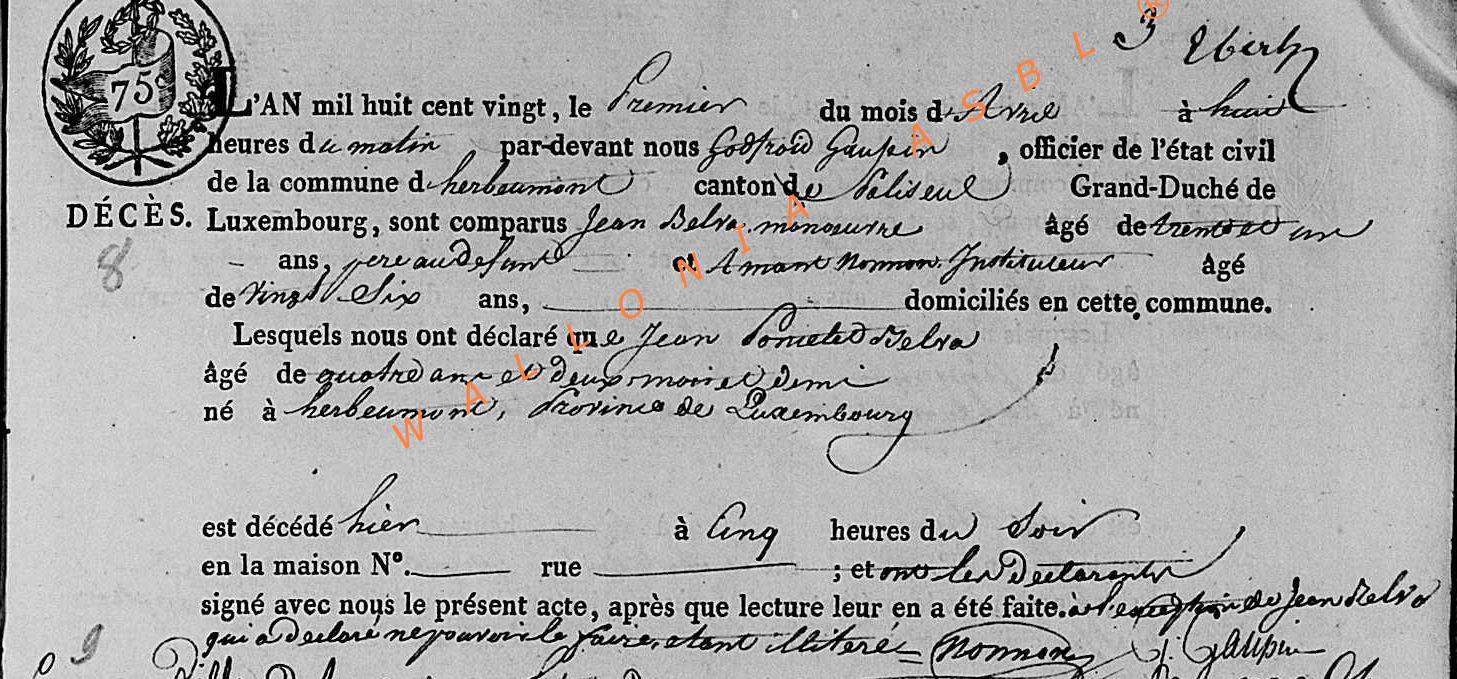 3 Ebert
75
L'AN mil huit cent vingt, le Premier du mois d'Avril à huit
heures du matin par-devant nous Godfroid Gaupin, officier de l'état civil
de la commune d'herbeumont canton de Paliseul Grand-Duché de
DÉCÈS. Luxembourg, sont comparus Jean Belva, manoeuvre âgé de trente et un
8 ans, pere au defunt et Amant Nonnon, Instituteur âgé
de vingt Six ans, domiciliés en cette commune.
Lesquels nous ont déclaré que Jean Belva
âgé de quatre ans et deux mois et demi
né à herbeumont, Province de Luxembourg
est décédé hier à Cinq heures du Soir
en la maison N°. rue ; et ont les Declarants
signé avec nous le présent acte, après que lecture leur en a été faite. à l'exception de Jean Belva
qui a declaré ne pouvoir le faire, etant illiteré Nonnon G. Gaupin
9
WALLONIA ASBL ®